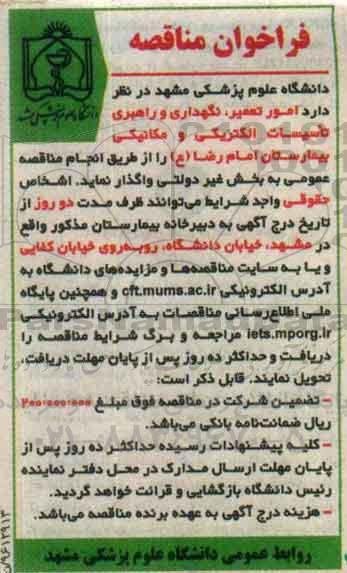 فراخوان مناقصه
دانشگاه علوم پزشکی مشهد
دانشگاه علوم پزشکی مشهد در نظر
دارد امور تعمیر، نگهداری و راهبری
تأسیسات الکتریکی و مکانیکی
بیمارستان امام رضا (ع) را از طریق انجام مناقصه
عمومی به بخش غیر دولتی واگذار نماید. اشخاص
حقوقی واجد شرایط می‌توانند ظرف مدت دو روز از
تاریخ درج آگهی به دبیرخانه بیمارستان مذکور واقع
در مشهد، خیابان دانشگاه، روبه‌روی خیابان کفایی
و یا به سایت مناقصه‌ها و مزایده‌های دانشگاه به
آدرس الکترونیکی cft.mums.ac.ir و همچنین پایگاه
ملی اطلاع‌رسانی مناقصات به آدرس الکترونیکی
iets.mporg.ir مراجعه و برگ شرایط مناقصه را
دریافت و حداکثر ده روز پس از پایان مهلت دریافت،
تحویل نمایند. قابل ذکر است:
– تضمین شرکت در مناقصه فوق مبلغ ۲۰۰،۰۰۰،۰۰۰
ریال ضمانت‌نامه بانکی می‌باشد.
– کلیه پیشنهادات رسیده حداکثر ده روز پس از
پایان مهلت ارسال مدارک در محل دفتر نماینده
رئیس دانشگاه بازگشایی و قرائت خواهد گردید.
– هزینه درج آگهی به عهده برنده مناقصه می‌باشد.
روابط عمومی دانشگاه علوم پزشکی مشهد